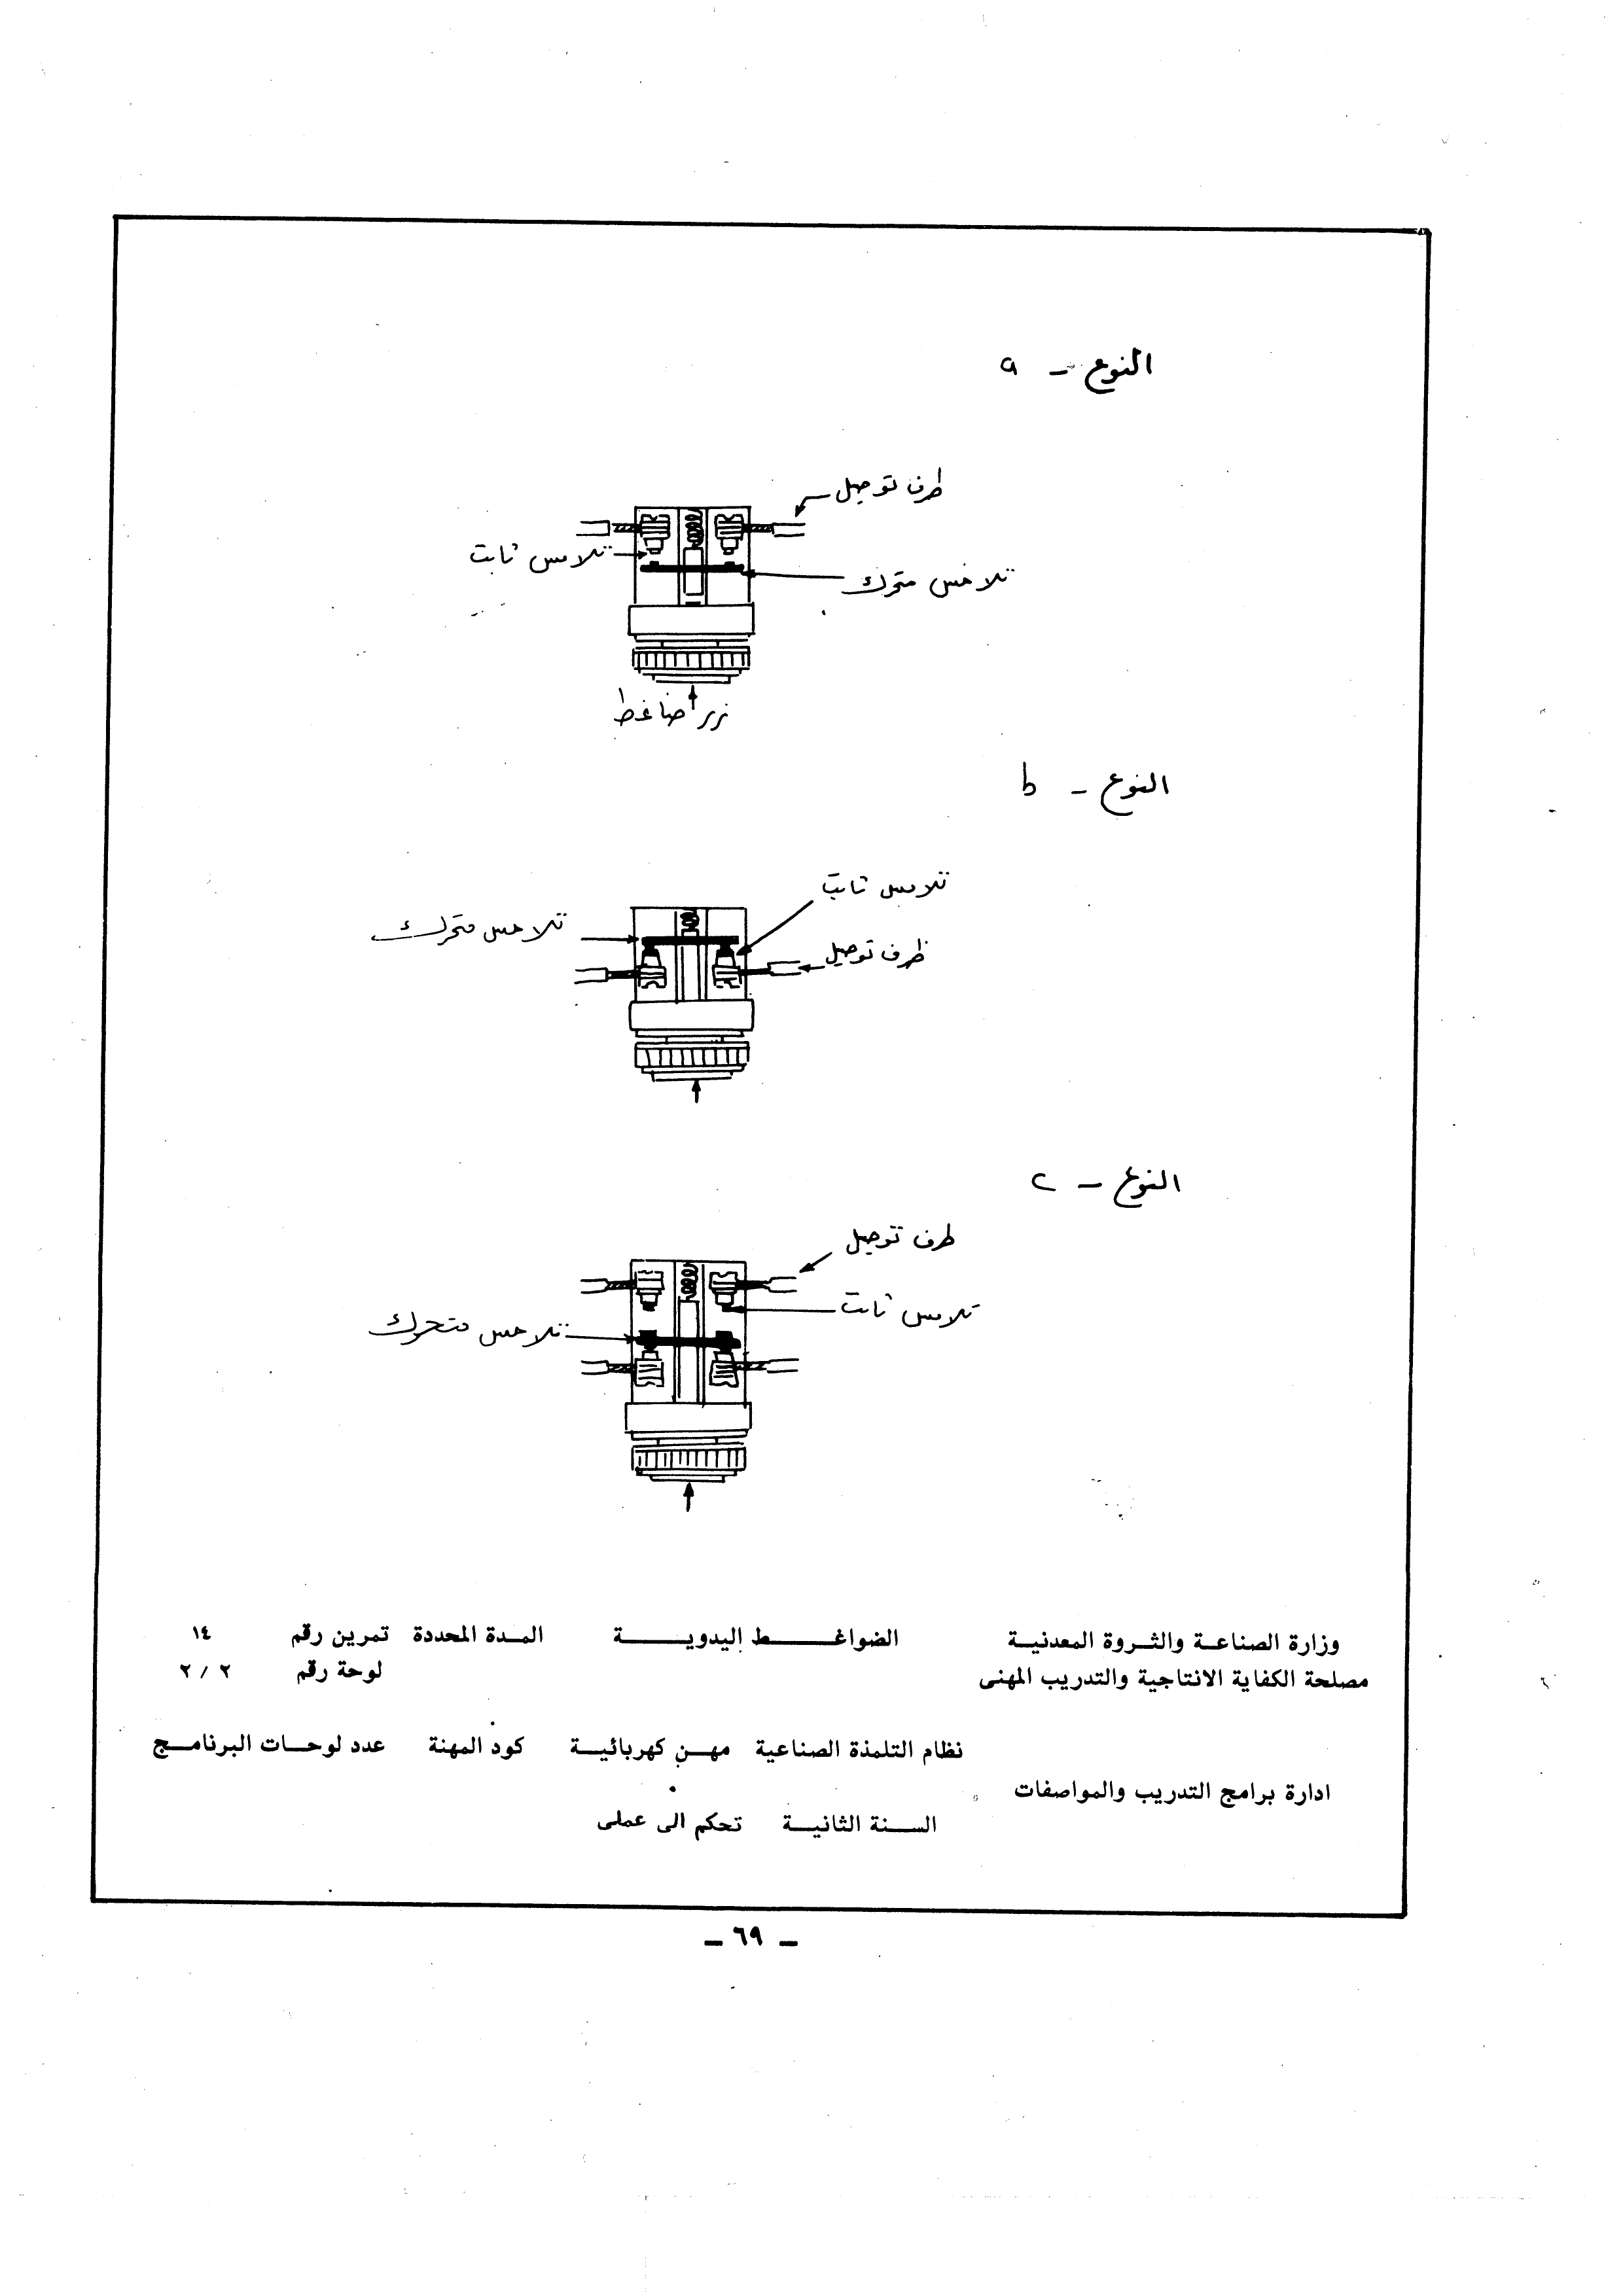 النوع - a
طرف توصيل
تلامس ثابت
تلامس متحرك
زر ضاغط
النوع - b
تلامس ثابت
تلامس متحرك
طرف توصيل
النوع - c
طرف توصيل
تلامس ثابت
تلامس متحرك
وزارة الصناعة والثروة المعدنية الضواغط اليدوية المدة المحددة تمرين رقم ١٤
مصلحة الكفاية الانتاجية والتدريب المهنى لوحة رقم ٢ / ٢
نظام التلمذة الصناعية مهن كهربائية كود المهنة عدد لوحات البرنامج
ادارة برامج التدريب والمواصفات
السنة الثانية تحكم الى عملى
- ٦٩ -